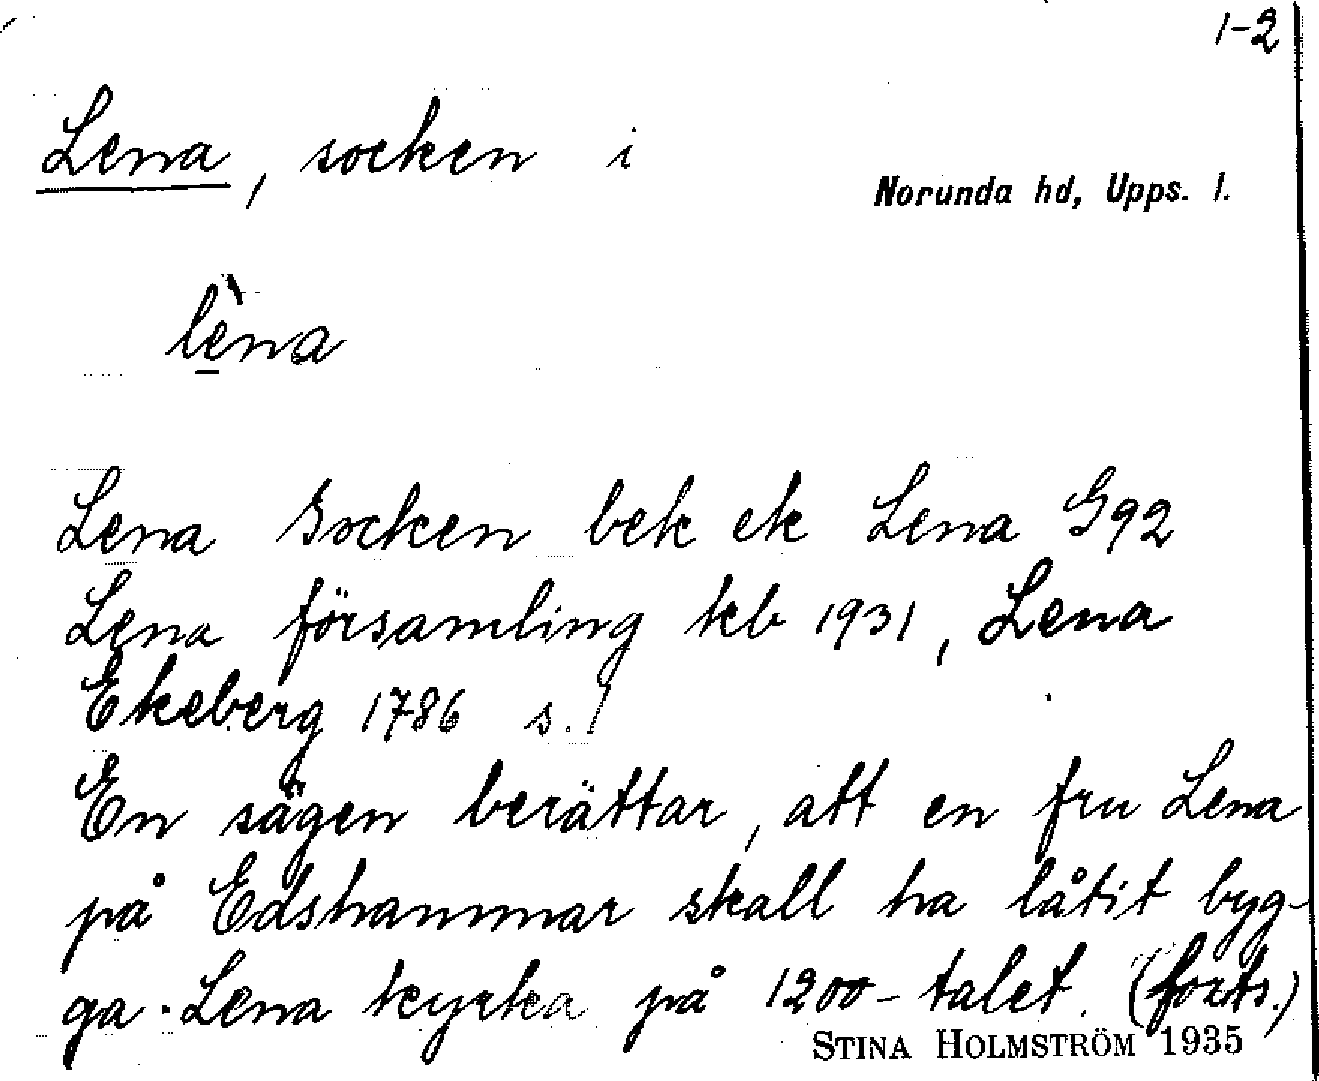 1-2
Lena, socken i
Norunda hd, Upps. l.
lèna
Lena Socken bek ek Lena G92
Lena församling kb 1931, Lena
Ekeberg 1786 s. 1
En sägen berättar, att en fru Lena
på Edshammar skall ha låtit byg-
ga Lena kyrka på 1200-talet. (forts.)
STINA HOLMSTRÖM 1935